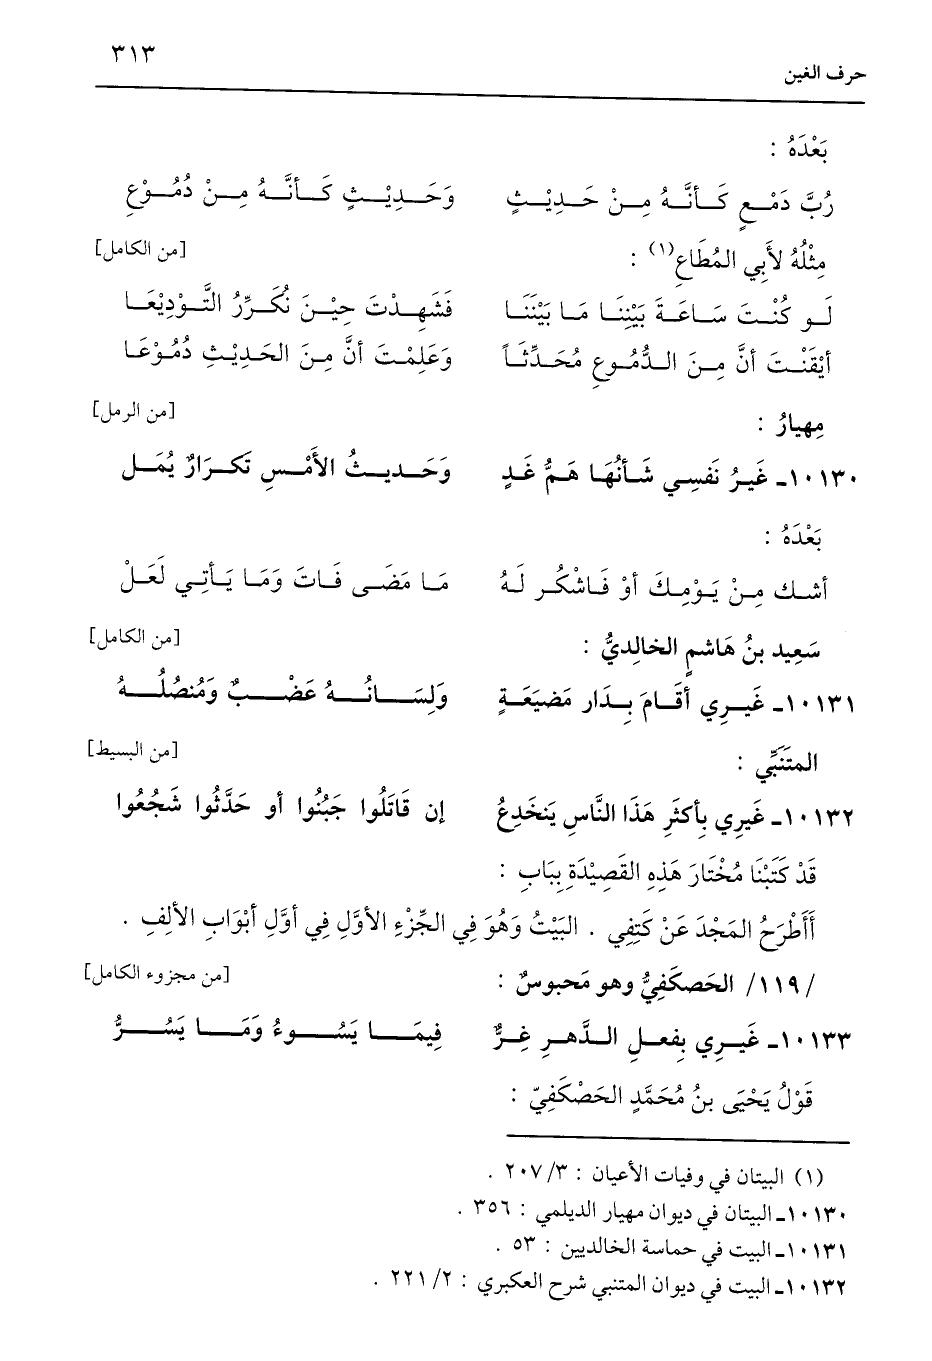 ٣١٣
حرف الغين
بَعْدَهُ :
رُبَّ دَمْعٍ كَأَنَّهُ مِنْ حَدِيْثٍ وَحَدِيْثٍ كَأَنَّهُ مِنْ دُمُوْعِ
مِثْلُهُ لأَبِي المُطَاعِ(١) : [من الكامل]
لَو كُنْتَ سَاعَةَ بَيْنِنَا مَا بَيْنَنَا فَشَهِدْتَ حِيْنَ نُكَرِّرُ التَّوْدِيْعَا
أيْقَنْتَ أنَّ مِنَ الدُّمُوعِ مُحَدِّثَاً وَعَلِمْتَ أنَّ مِنَ الحَدِيْثِ دُمُوْعَا
مِهيارُ : [من الرمل]
١٠١٣٠ـ غَيرُ نَفسِي شَأنُهَا هَمُّ غَدٍ وَحَديثُ الأَمْسِ تَكرَارٌ يُمَل
بَعْدَهُ :
أشك مِنْ يَوْمِكَ أوْ فَاشْكُر لَهُ مَا مَضَى فَاتَ وَمَا يَأتِي لَعَلْ
سَعِيد بنُ هَاشمٍ الخالِديُّ : [من الكامل]
١٠١٣١ـ غَيرِي أقَامَ بِدَار مَضيَعَةٍ وَلِسَانُهُ عَضْبٌ وَمُنصُلُهُ
المتَنَبِّي : [من البسيط]
١٠١٣٢ـ غَيرِي بِأكثَرِ هَذَا النَّاسِ يَنخَدِعُ إن قَاتَلُوا جَبُنُوا أو حَدَّثُوا شَجُعُوا
قَدْ كَتَبْنَا مُخْتَارَ هَذِهِ القَصِيْدَةِ بِبَابِ :
أَأَطْرَحُ المَجْدَ عَنْ كَتِفِي . البَيْتُ وَهُوَ فِي الجِّزْءِ الأوَّلِ فِي أوَّلِ أبْوَابِ الألِفِ .
/ ١١٩/ الحَصكَفِيُّ وهو مَحبوسٌ : [من مجزوء الكامل]
١٠١٣٣ـ غَيرِي بِفعلِ الدَّهرِ غِرٌّ فِيمَا يَسُوءُ وَمَا يَسُرُّ
قَوْلُ يَحْيَى بنُ مُحَمَّدٍ الحَصْكَفِيّ :
(١) البيتان في وفيات الأعيان : ٣/ ٢٠٧ .
١٠١٣٠ـ البيتان في ديوان مهيار الديلمي : ٣٥٦ .
١٠١٣١ـ البيت في حماسة الخالديين : ٥٣ .
١٠١٣٢ـ البيت في ديوان المتنبي شرح العكبري : ٢/ ٢٢١ .